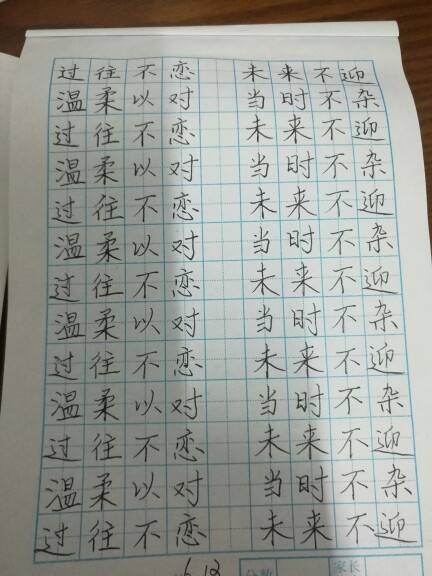 过往不恋 未来不迎
温柔以对 当时不杂
过往不恋 未来不迎
温柔以对 当时不杂
过往不恋 未来不迎
温柔以对 当时不杂
过往不恋 未来不迎
温柔以对 当时不杂
过往不恋 未来不迎
温柔以对 当时不杂
过往不恋 未来不迎
温柔以对 当时不杂
过往不恋 未来不迎